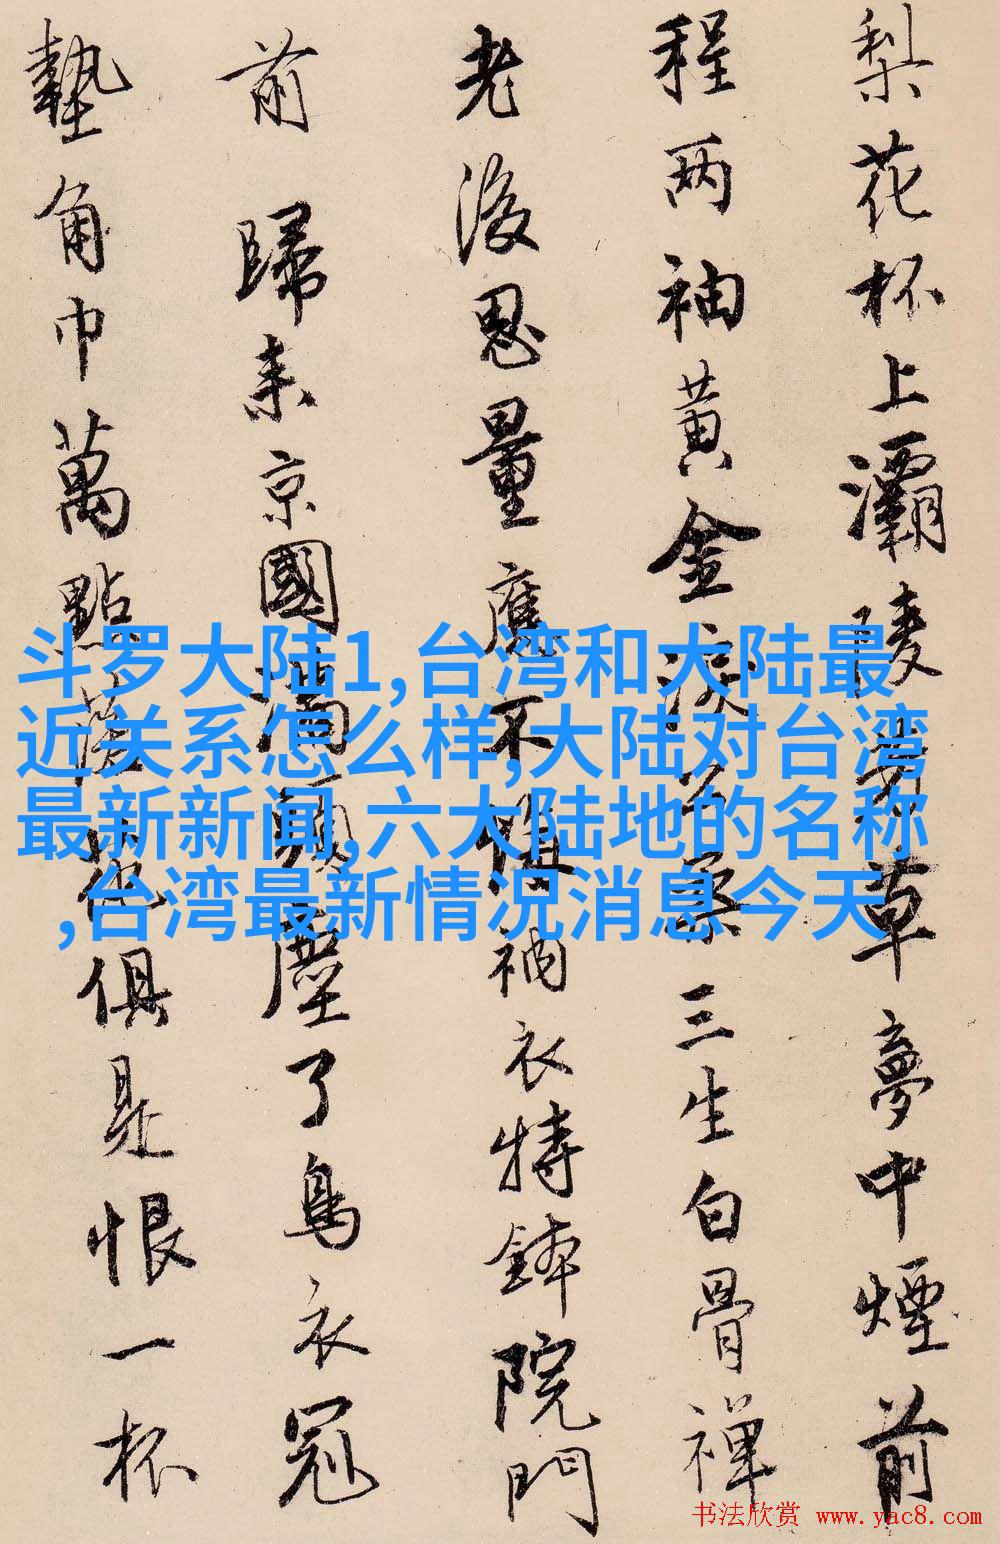 梨花杯上灞陵草夢中煙前
程两袖黄金三生白骨禪
老後思量應不衲衣持鉢院門
前 歸来京國塵了烏衣冠
墊角巾萬點花俱是恨一杯
斗罗大陆1,台湾和大陆最
近关系怎么样,大陆对台湾
最新新闻,六大陆地的名称
,台湾最新情况消息今天
书法欣赏 www.yac8.com